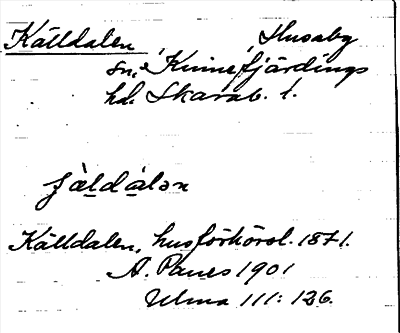 Källdalen Husaby
sn, Kinnefjärdings
hd. Skarab. l.
Källdalen, husförhörsl. 1871.
A. Palues 1901
Ulma 111: 126.